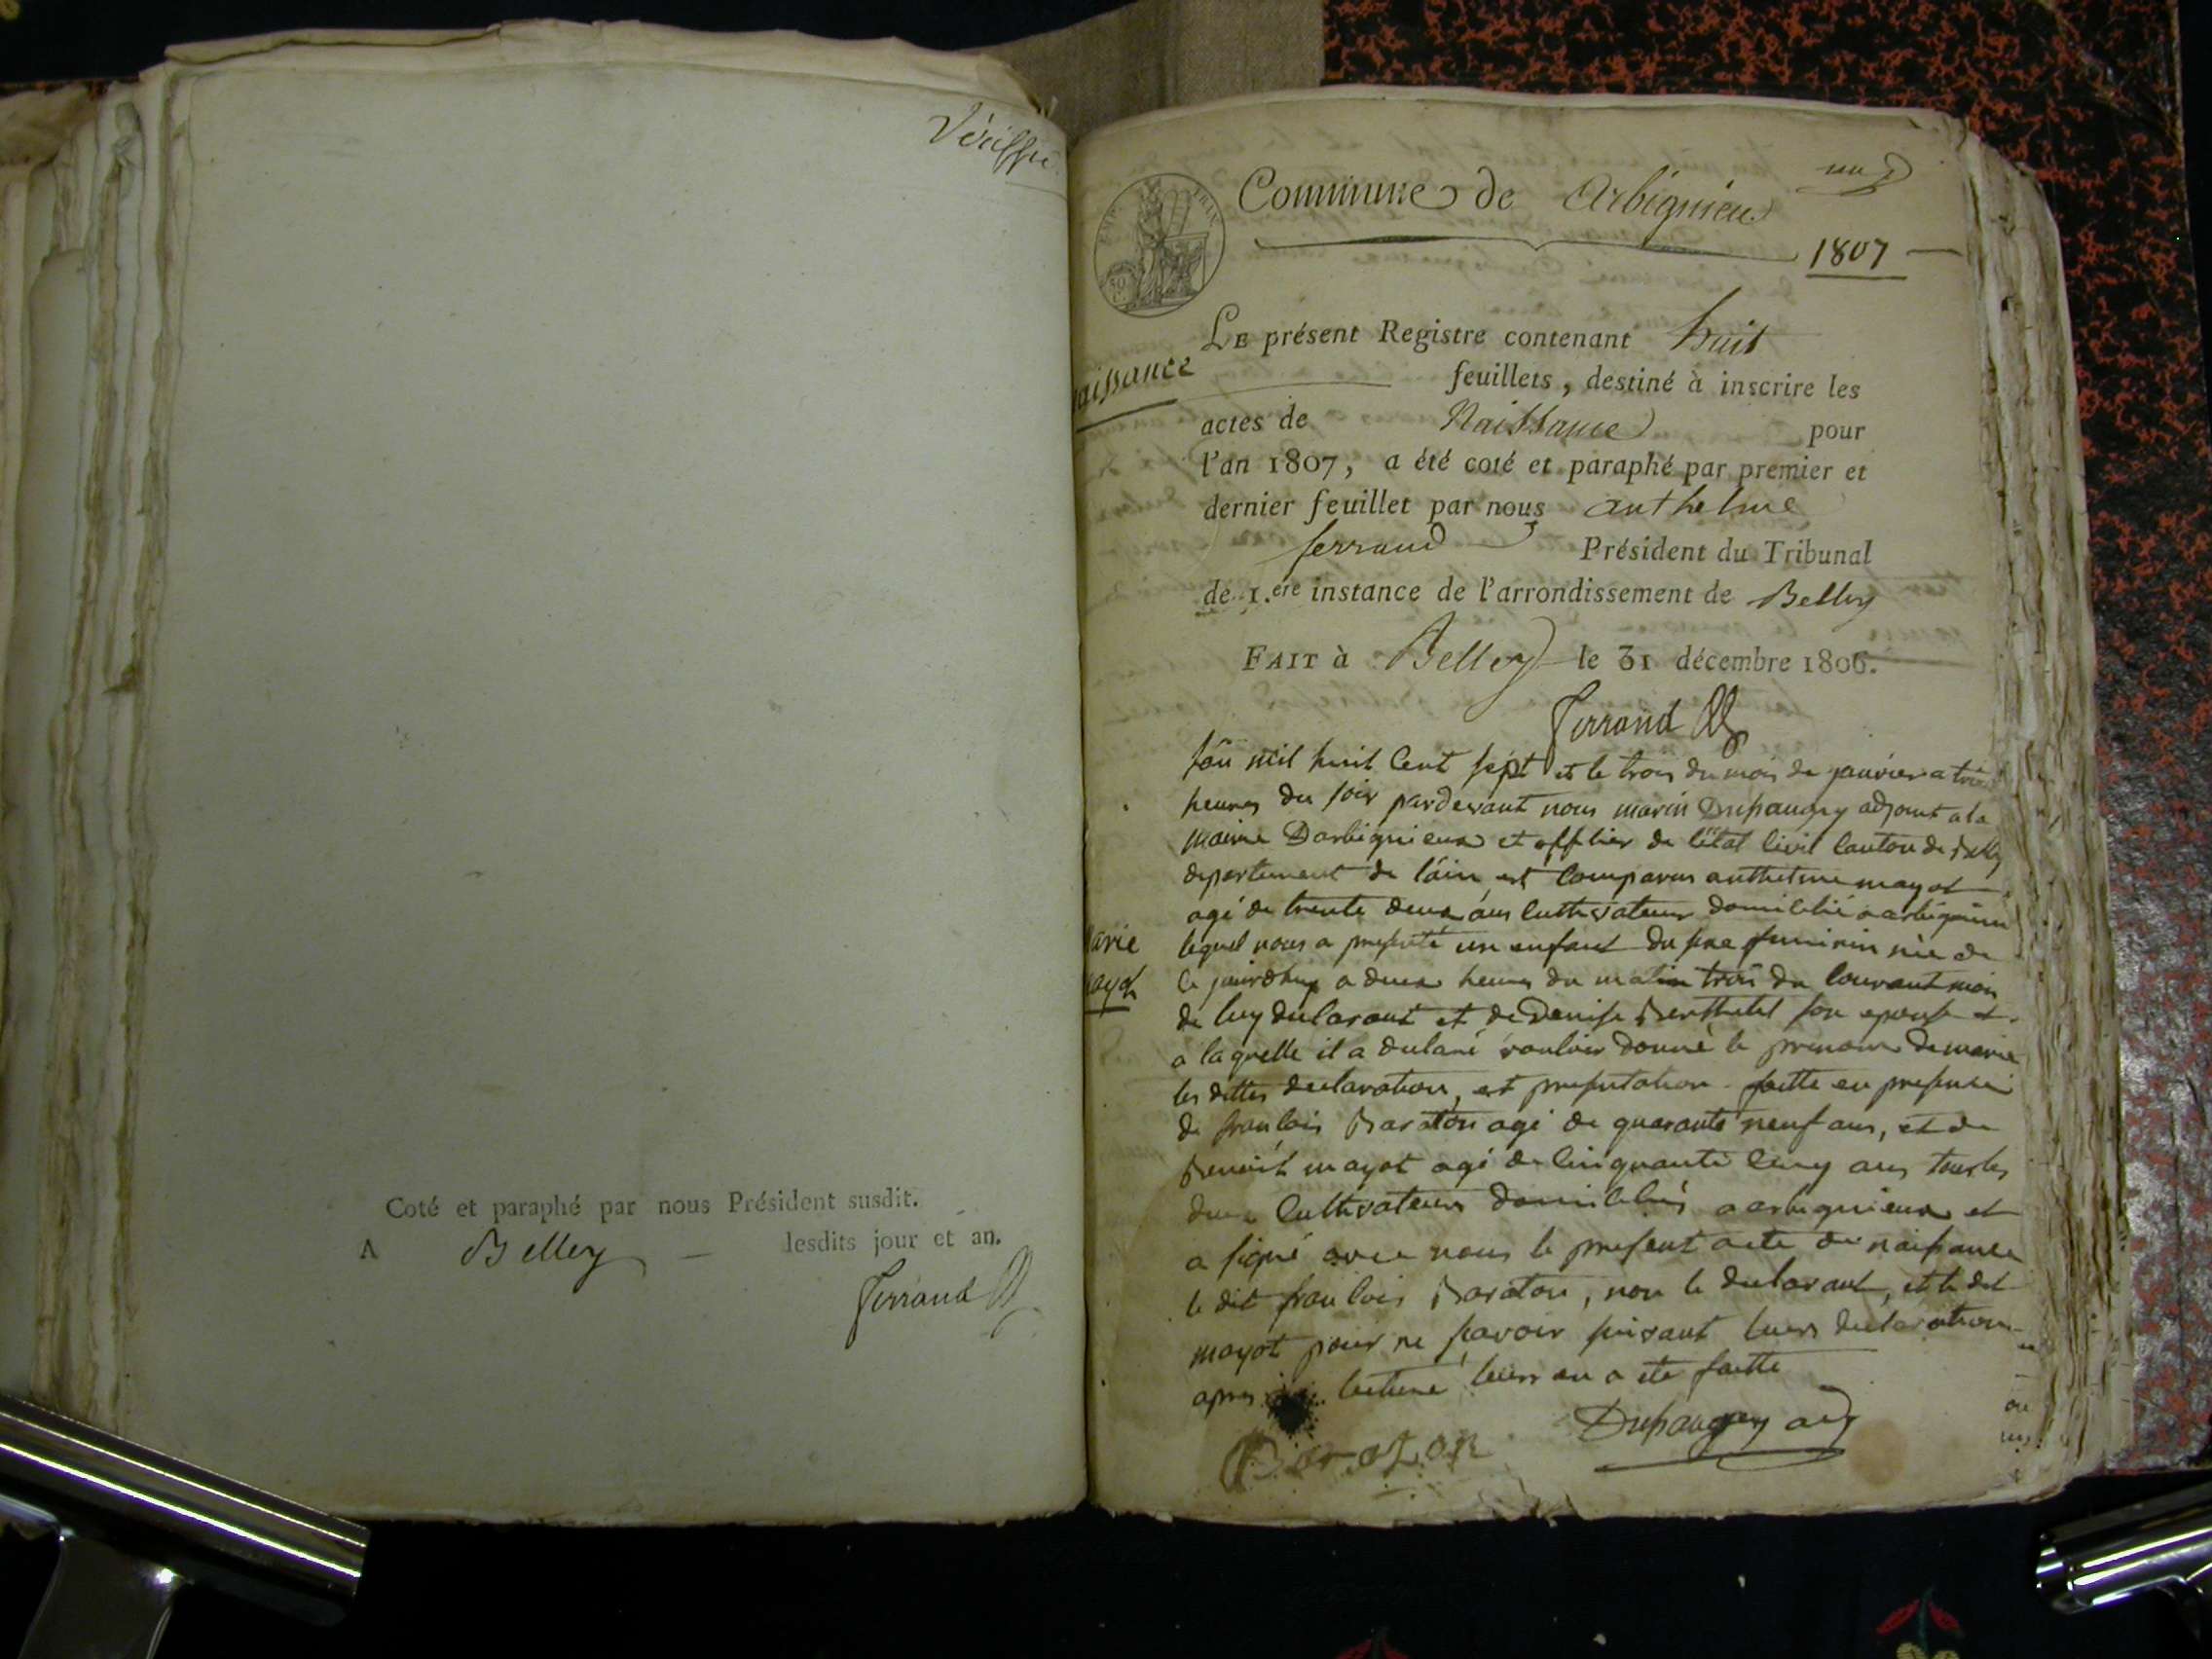 Vériffié
Coté et paraphé par nous Président susdit.
A Belley lesdits jour et an.
Ferrand
un
Commune de Arbignieu
1807
EMP. FRAN.
LE présent Registre contenant huit
feuillets, destiné à inscrire les
aissance
actes de Naissance pour
l'an 1807, a été coté et paraphé par premier et
dernier feuillet par nous anthelme
ferrand Président du Tribunal
de 1.ere instance de l'arrondissement de Belley
FAIT à Belley le 31 décembre 1806.
Ferrand
l'an mil huit cent sept et le trois du mois de janvier a trois
heures du soir pardevant nous marin Dupaugey adjoint a la
mairie Darbignieux et offlier de l'état civil canton de Belley
departement de l'ain est comparus anthelme mayot
agé de trente deux ans cultivateur domicilié a arbignieu
arie
ayot
lequel nous a presenté un enfant du sexe feminin née de
ce jourdhuy a deux heures du matin trois du courant mois
de luy declarant et de Denise Berthelet son epouse et
a laquelle il a declaré vouloir donné le prenom de marie
les dittes declaration, et presentation faitte en presence
de francois Baraton agé de quarante neuf ans, et de
Benoit mayot agé de cinquante cinq ans tous les
deux cultivateurs domiciliés a arbignieux et
a signé avec nous le present acte de naissance
le dit francois Baraton, non le declarant, et le dit
mayot pour ne savoir suivant leurs declaration
apres lecture leurs en a été faitte
Baraton Dupaugey adj